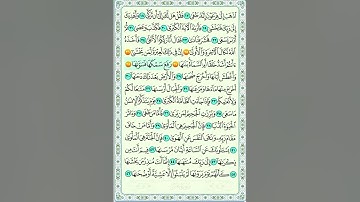 ٱذۡهَبۡ إِلَىٰ فِرۡعَوۡنَ إِنَّهُۥ طَغَىٰ ١٧ فَقُلۡ هَل لَّكَ إِلَىٰٓ أَن تَزَكَّىٰ ١٨ وَأَهۡدِيَكَ
إِلَىٰ رَبِّكَ فَتَخۡشَىٰ ١٩ فَأَرَىٰهُ ٱلۡأٓيَةَ ٱلۡكُبۡرَىٰ ٢٠ فَكَذَّبَ وَعَصَىٰ ٢١
ثُمَّ أَدۡبَرَ يَسۡعَىٰ ٢٢ فَحَشَرَ فَنَادَىٰ ٢٣ فَقَالَ أَنَا۠ رَبُّكُمُ ٱلۡأَعۡلَىٰ ٢٤ فَأَخَذَهُ
ٱللَّهُ نَكَالَ ٱلۡأٓخِرَةِ وَٱلۡأُولَىٰٓ ٢٥ إِنَّ فِي ذَٰلِكَ لَعِبۡرَةٗ لِّمَن يَخۡشَىٰٓ ٢٦
ءَأَنتُمۡ أَشَدُّ خَلۡقًا أَمِ ٱلسَّمَآءُۚ بَنَىٰهَا ٢٧ رَفَعَ سَمۡكَهَا فَسَوَّىٰهَا ٢٨
وَأَغۡطَشَ لَيۡلَهَا وَأَخۡرَجَ ضُحَىٰهَا ٢٩ وَٱلۡأَرۡضَ بَعۡدَ ذَٰلِكَ دَحَىٰهَآ
٣٠ أَخۡرَجَ مِنۡهَا مَآءَهَا وَمَرۡعَىٰهَا ٣١ وَٱلۡجِبَالَ أَرۡسَىٰهَا ٣٢ مَتَٰعٗا لَّكُمۡ
وَلِأَنۡعَٰمِكُمۡ ٣٣ فَإِذَا جَآءَتِ ٱلطَّآمَّةُ ٱلۡكُبۡرَىٰ ٣٤ يَوۡمَ يَتَذَكَّرُ ٱلۡإِنسَٰنُ
مَا سَعَىٰ ٣٥ وَبُرِّزَتِ ٱلۡجَحِيمُ لِمَن يَرَىٰ ٣٦ فَأَمَّا مَن طَغَىٰ ٣٧ وَءَاثَرَ
ٱلۡحَيَوٰةَ ٱلدُّنۡيَا ٣٨ فَإِنَّ ٱلۡجَحِيمَ هِيَ ٱلۡمَأۡوَىٰ ٣٩ وَأَمَّا مَنۡ خَافَ
مَقَامَ رَبِّهِۦ وَنَهَى ٱلنَّفۡسَ عَنِ ٱلۡهَوَىٰ ٤٠ فَإِنَّ ٱلۡجَنَّةَ هِيَ ٱلۡمَأۡوَىٰ
٤١ يَسۡـَٔلُونَكَ عَنِ ٱلسَّاعَةِ أَيَّانَ مُرۡسَىٰهَا ٤٢ فِيمَ أَنتَ مِن
ذِكۡرَىٰهَآ ٤٣ إِلَىٰ رَبِّكَ مُنتَهَىٰهَآ ٤٤ إِنَّمَآ أَنتَ مُنذِرُ مَن يَخۡشَىٰهَا
٤٥ كَأَنَّهُمۡ يَوۡمَ يَرَوۡنَهَا لَمۡ يَلۡبَثُوٓاْ إِلَّا عَشِيَّةً أَوۡ ضُحَىٰهَا ٤٦